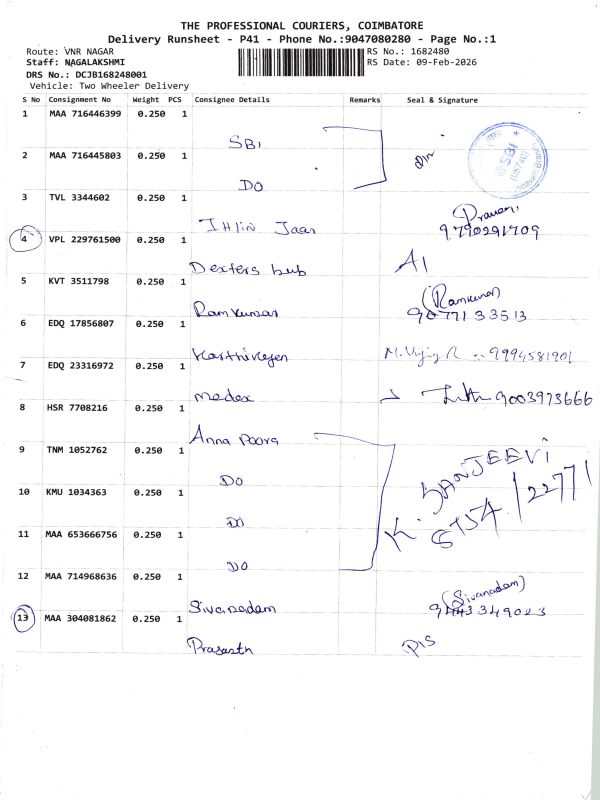 THE PROFESSIONAL COURIERS, COIMBATORE
Delivery Runsheet - P41 - Phone No.:9047080280 - Page No.:1
Route: VNR NAGAR
RS No.: 1682480
Staff: NAGALAKSHMI
RS Date: 09-Feb-2026
DRS No.: DCJB168248001
Vehicle: Two Wheeler Delivery
S No Consignment No Weight PCS Consignee Details Remarks Seal & Signature
1 MAA 716446399 0.250 1
SBI
2 MAA 716445803 0.250 1
SBI
DO
3 TVL 3344602 0.250 1
Jaas
9790291709
4 VPL 229761500 0.250 1
Dexters hub A1
5 KVT 3511798 0.250 1
(Ramkumar)
Ramkumar 9077133513
6 EDQ 17856807 0.250 1
Karthikeyen 9994581901
7 EDQ 23316972 0.250 1
Medex 9003973666
8 HSR 7708216 0.250 1
Anna Poora
9 TNM 1052762 0.250 1
DO
K. SANJEEVI
10 KMU 1034363 0.250 1
DO
5154/22771
11 MAA 653666756 0.250 1
DO
12 MAA 714968636 0.250 1
(Sivanadam)
Sivanadam
13 MAA 304081862 0.250 1
Prasasth PIS